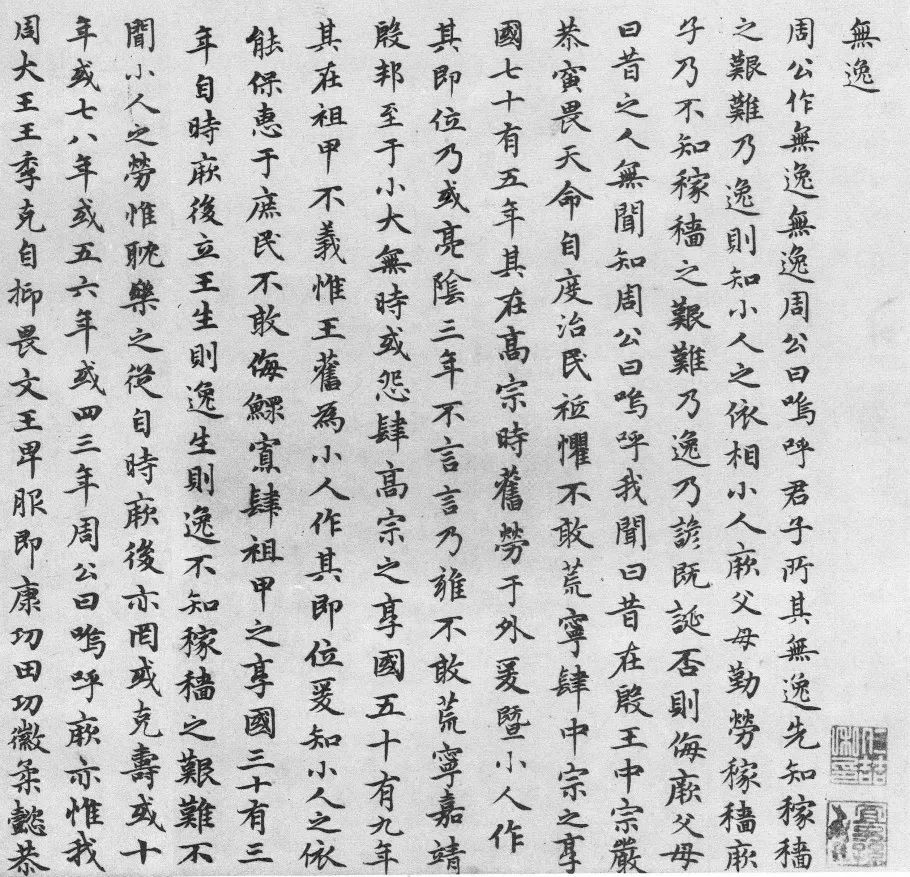 無逸
周公作無逸無逸周公曰嗚呼君子所其無逸先知稼穡
之艱難乃逸則知小人之依相小人厥父母勤勞稼穡厥
子乃不知稼穡之艱難乃逸乃諺既誕否則侮厥父母
曰昔之人無聞知周公曰嗚呼我聞曰昔在殷王中宗嚴
恭寅畏天命自度治民祗懼不敢荒寧肆中宗之享
國七十有五年其在高宗時舊勞于外爰暨小人作
其即位乃或亮陰三年不言言乃雍不敢荒寧嘉靖
殷邦至于小大無時或怨肆高宗之享國五十有九年
其在祖甲不義惟王舊為小人作其即位爰知小人之依
能保惠于庶民不敢侮鰥寡肆祖甲之享國三十有三
年自時厥後立王生則逸生則逸不知稼穡之艱難不
聞小人之勞惟耽樂之從自時厥後亦罔或克壽或十
年或七八年或五六年或四三年周公曰嗚呼厥亦惟我
周大王王季克自抑畏文王卑服即康功田功徽柔懿恭